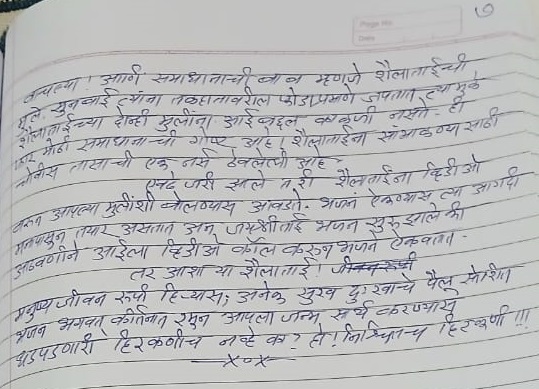 ७
Page No.
Date
बनल्या! आणि समाधानाची बाब म्हणजे शैलाताईंची
मुले, सुनबाई त्यांना तळहातावरील फोडाप्रमाणे जपतात त्यामुळे
शैलाताईच्या दोन्ही मुलींना आईबद्दल काळजी नसते. ही
फार मोठी समाधानाची गोष्ट आहे! शैलाताईंना सांभाळण्यासाठी
चोवीस तासाची एक नर्स ठेवलेली आहे.
एवढे जरी झाले तरी शैलाताईंना व्हिडीओ
करून आपल्या मुलींशी बोलण्यास आवडते. भजने ऐकण्यास त्या अगदी
मनापासून तयार असतात अन् जयश्रीताई भजन सुरू झाले की
आठवणीने आईला व्हिडीओ कॉल करून भजने ऐकवतात.
तर अशा या शैलाताई!
मनुष्य जीवन रुपी हिऱ्यास, अनेक सुख दुःखाचे पैलू सोशित
भजन भगवंत कीर्तनात रमुन आपला जन्म सार्थ करण्यास
धडपडणारी हिरकणीच नव्हे का? हो! निश्चितच हिरकणी!!!
—x०x—